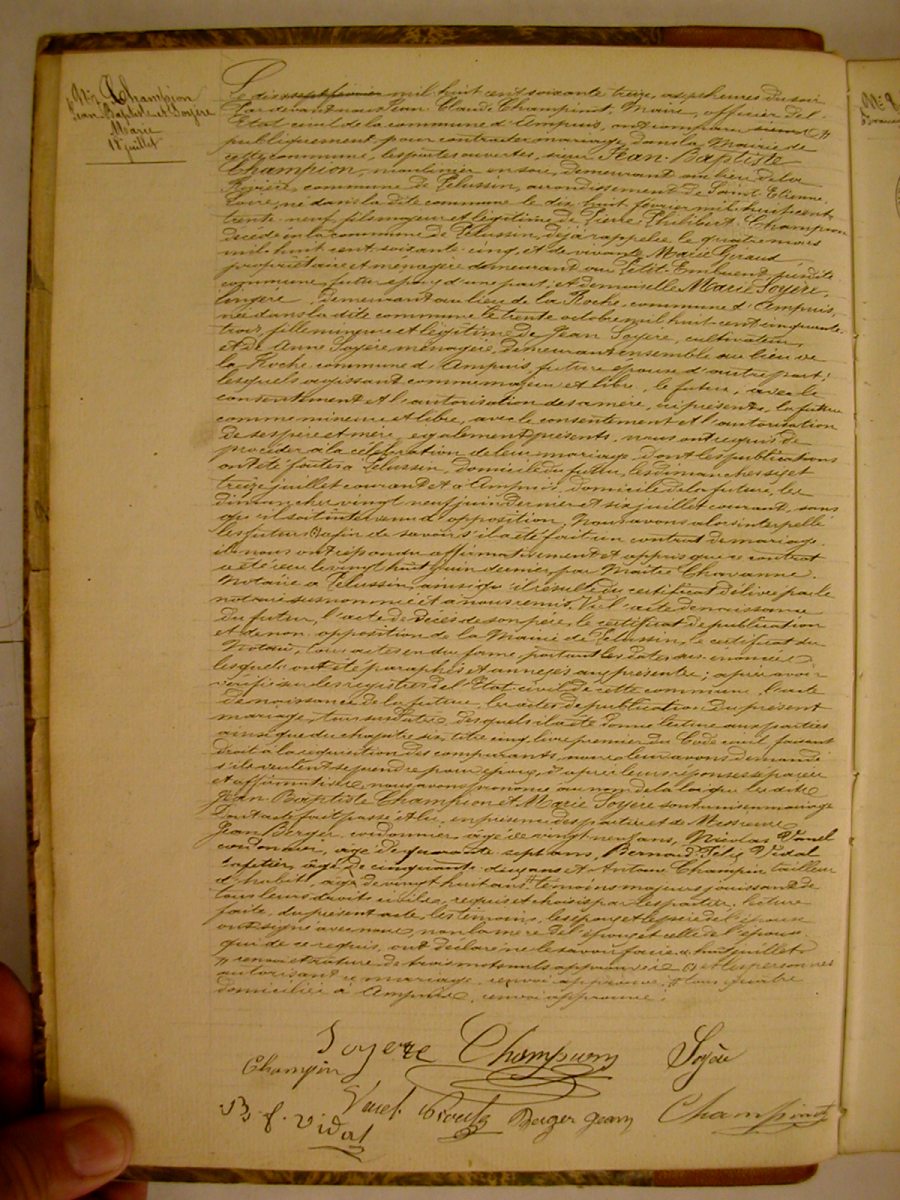 N° 7 Champion
Jean Baptiste et Soyère
Marie
18 juillet
Le dix mil huit cent soixante treize, à sept heures du soir
Par devant nous Jean Claude Champinot, Maire, officier de l'
Etat civil de la commune d'Ampuis, ont comparu
publiquement pour contracter mariage dans la Mairie de
cette commune, les portes ouvertes, sieur Jean-Baptiste
Champion, moulinier en soie, demeurant au lieu de la
commune de Pélussin, arrondissement de Saint-Etienne,
Loire, né dans la dite commune le dix huit février mil huit cent
trente neuf, fils majeur et légitime de Pierre Philibert Champion
décédé en la commune de Pélussin, déjà rappelée, le quatre mars
mil huit cent soixante cinq, et de vivante Marie Giraud
propriétaire et ménagère demeurant au Petit Embuent, susdite
commune, futur époux d'une part, et demoiselle Marie Soyère,
lingère, demeurant au lieu de la Roche, commune d'Ampuis,
née dans la dite commune le trente octobre mil huit cent cinquante-
trois, fille mineure et légitime de Jean Soyère, cultivateur,
et de Anne Soyère, ménagère, demeurant ensemble au lieu de
la Roche commune d'Ampuis, future épouse d'autre part;
lesquels agissant comme majeur et libre, le futur, avec le
consentement et l'autorisation de sa mère, ici présente, la future
comme mineure et libre, avec le consentement et l'autorisation
de ses père et mère, également présents, nous ont requis de
procéder à la célébration de leur mariage, dont les publications
ont été faites à Pélussin, domicile du futur, les dimanches six et
treize juillet courant et à Ampuis, domicile de la future, les
dimanches vingt neuf juin dernier et six juillet courant, sans
qu'il soit intervenu d'opposition, Nous avons alors interpellé
les futurs afin de savoir s'il a été fait un contrat de mariage.
ils nous ont répondu affirmativement et appris que ce contrat
a été reçu le vingt huit juin dernier, par Maître Chavanne.
Notaire à Pélussin, ainsi qu'il résulte du certificat délivré par le
notaire susnommé et à nous remis. Vu l'acte de naissance
du futur, l'acte de décès de son père, le certificat de publication
et de non opposition de la Mairie de Pélussin, le certificat du
Notaire, tous actes en due forme, portant les dates sus énoncées
lesquels ont été paraphés et annexés au présente; après avoir
vérifié sur les registres de l'Etat-civil de cette commune l'acte
de naissance de la future, les actes de publication du présent
mariage, tous susdatés, desquels il a été donné lecture aux parties
ainsi que du chapitre six, titre cinq, livre premier du Code civil, faisant
droit à la réquisition des comparants, nous leur avons demandé
s'ils veulent se prendre pour époux, d'après leurs réponses séparées
et affirmatives, nous avons prononcé au nom de la loi que les dits
Jean-Baptiste Champion et Marie Soyère sont unis en mariage
Dont acte fait, passé et lu, en présence des parties et de Messieurs
Jean Berger, cordonnier, âgé de vingt neuf ans, Nicolas Vanel
cordonnier, âgé de quarante sept ans, Bernard Félix Vidal
cafetier, âgé de cinquante deux ans et Antoine Champin tailleur
d'habits, âgé de vingt huit ans, témoins majeurs jouissant de
tous leurs droits civils, requis et choisis par les parties. Lecture
faite du présent acte, les témoins, les époux et le père de l'épouse
ont signé avec nous, non la mère de l'époux et celle de l'épouse
qui de ce requis, ont déclaré ne le savoir faire. dix huit juillet
renvoi et rature de trois mots nuls approuvés et les personnes
autorisant ce mariage. renvoi approuvé. tous quatre
domiciliés à Ampuis, renvoi approuvé.
Soyere Champion Soyère
Champin
Vanel Berger Jean Champinot
B. f. Vidal